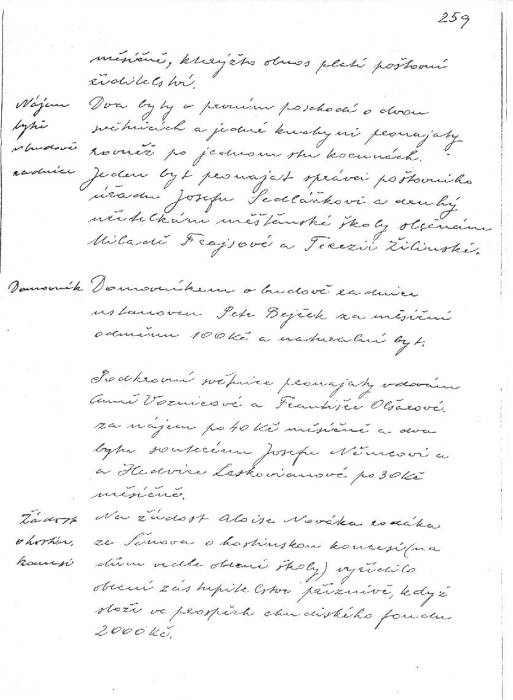 259
měsíčně, kterýžto obnos platí poštovní
ředitelství.
Nájem
bytů
v budově
radnice
Dva byty v prvním poschodí o dvou
světnicích a jedné kuchyni pronajaty
rovněž po jednom stu korunách.
Jeden byt pronajat správci poštovního
úřadu Josefu Sedláčkovi a druhý
učitelkám měšťanské školy slečnám
Miladě Frajsové a Terezii Žilinské.
Domovník
Domovníkem v budově radnice
ustanoven Petr Bejček za měsíční
odměnu 100 Kč a naturální byt.
Podkrovní světnice pronajaty vdovám
Anně Voznicové a Františce Olšarové
za nájem po 40 Kč měsíčně a dva
byty Josefu Němcovi a
a Hedvice Leskovianové po 30 Kč
měsíčně.
Žádost
o hostin.
koncesi
Na žádost Aloise Nováka rodáka
ze Šanova o hostinskou koncesi (na
dům vedle obecné školy) vyřídilo
obecní zastupitelstvo příznivě, když
složí ve prospěch chudinského fondu
2000 Kč.